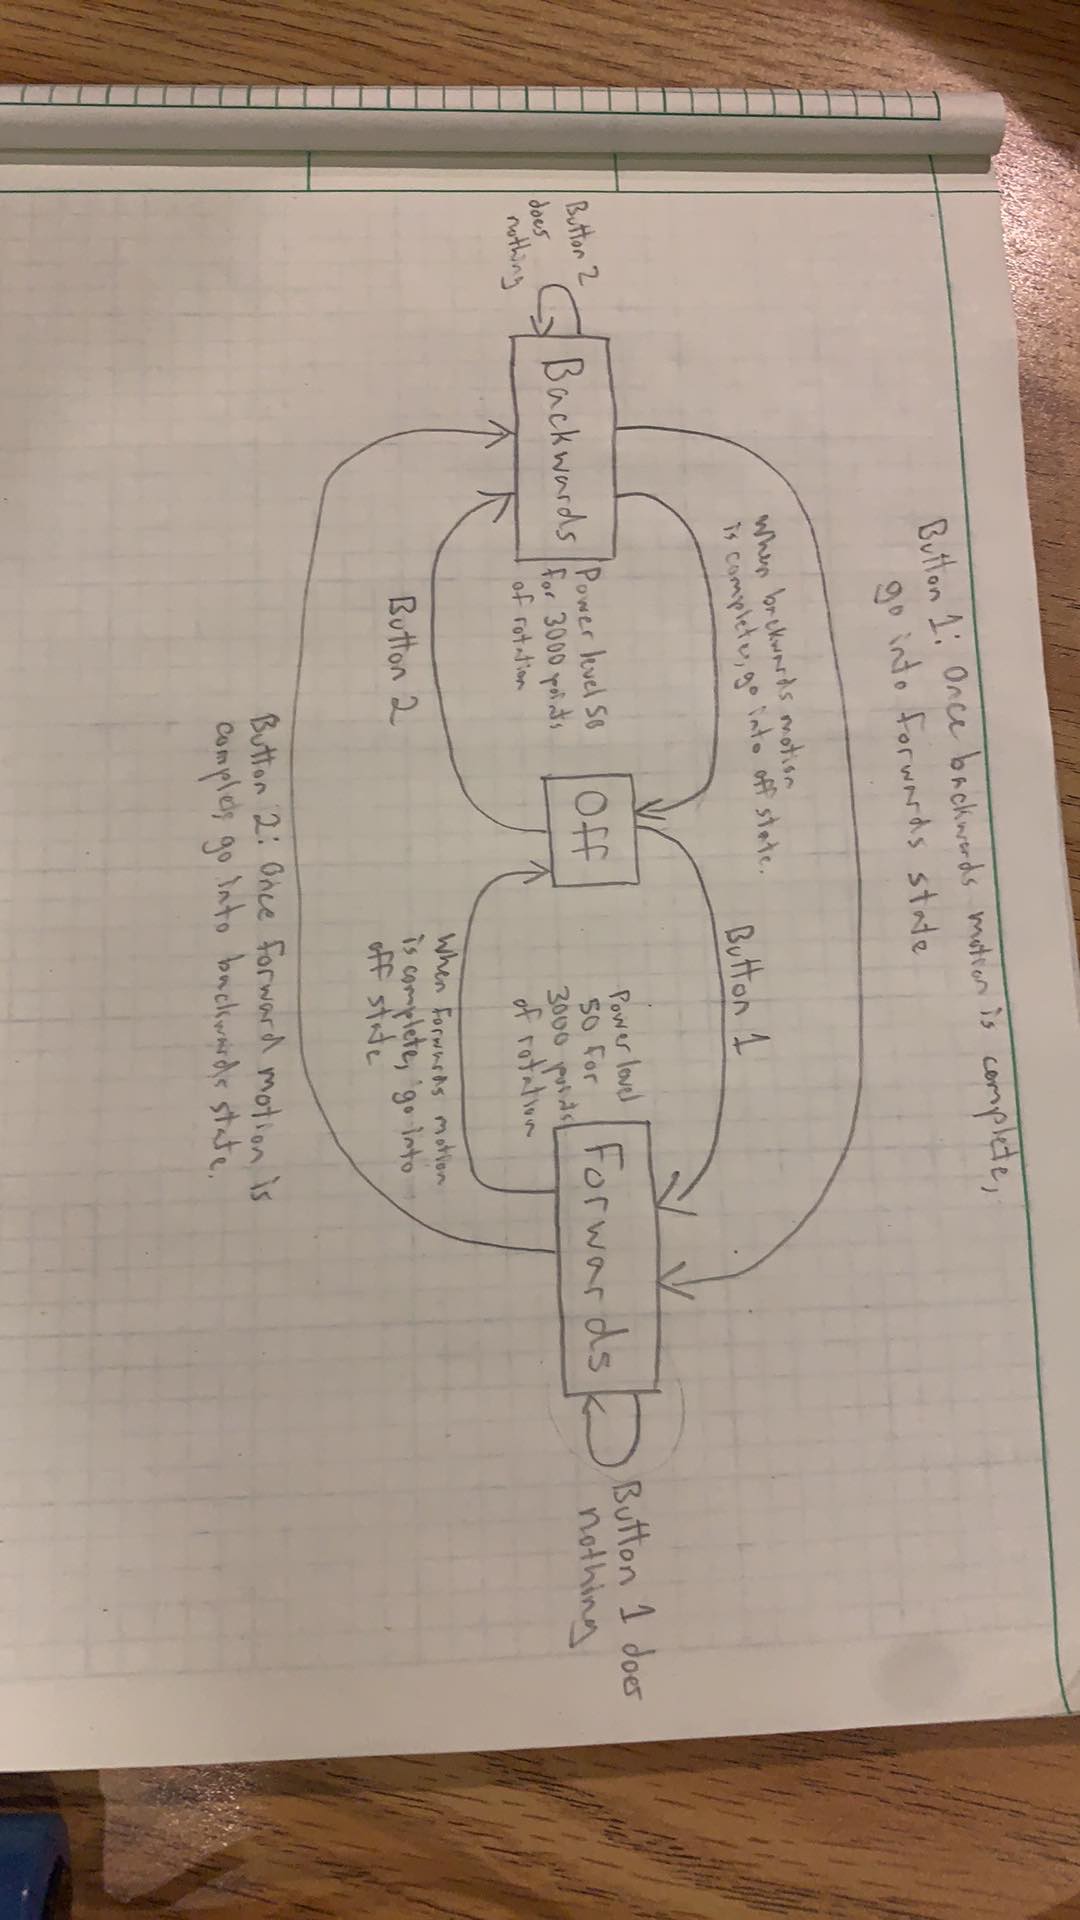 Button 1: Once backwards motion is complete,
go into forwards state
When backwards motion
is complete, go into off state.
Button 1
Button 2
does
nothing
Backwards
Power level 50
for 3000 points
of rotation
Off
Power level
50 for
3000 points
of rotation
Forwards
Button 1 does
nothing
Button 2
When forwards motion
is complete, go into
off state
Button 2: Once forward motion is
complete, go into backwards state.